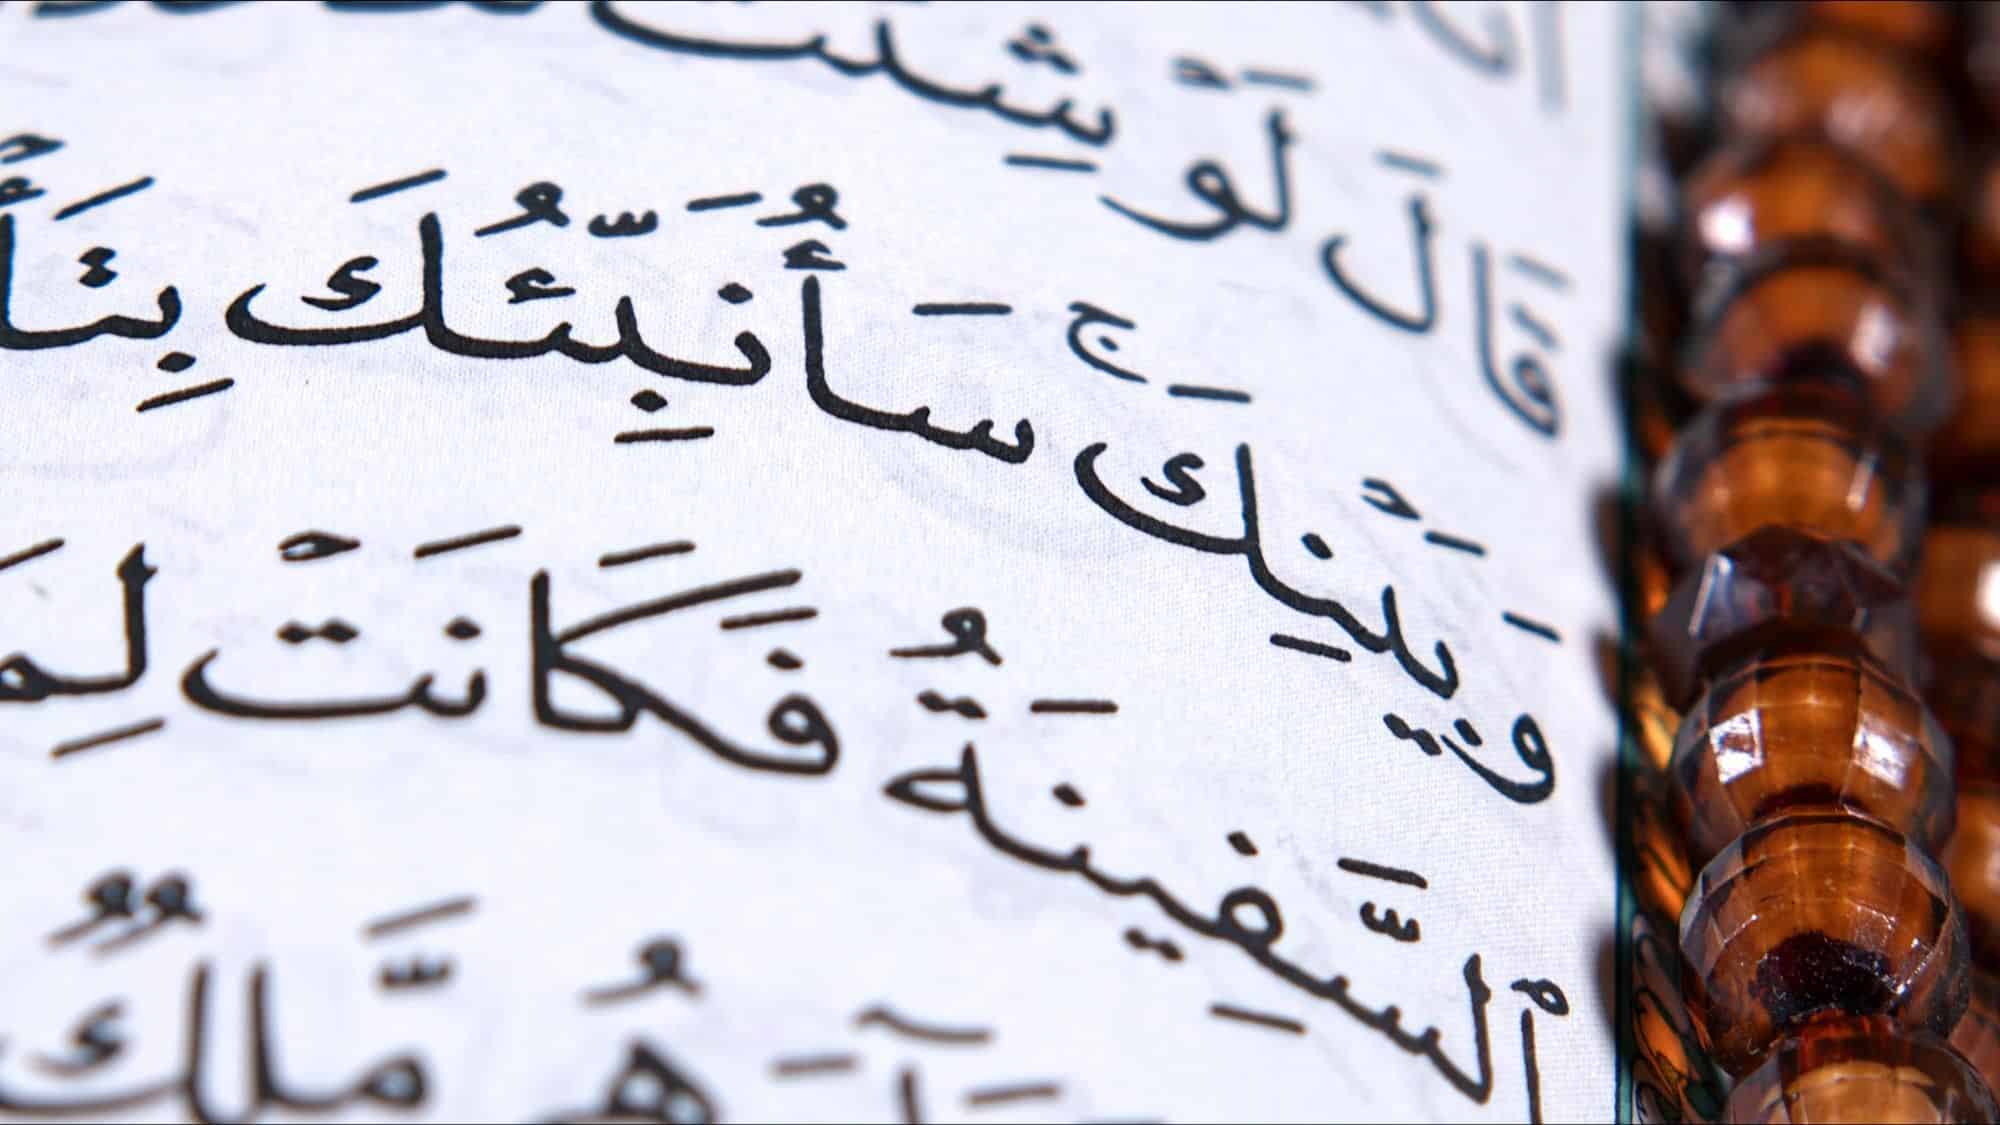 قَالَ لَوْ شِئْتَ
وَبَيْنِكَ ۚ سَأُنَبِّئُكَ بِتَأْ
ٱلسَّفِينَةُ فَكَانَتْ لِمَ
مَّلِكٌ